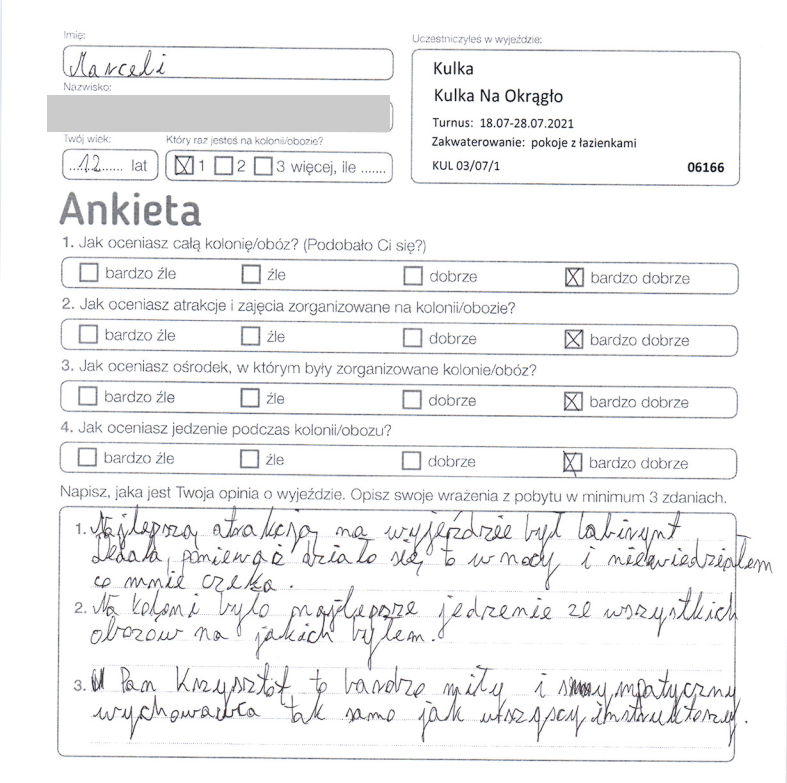 Imię:
Marceli
Nazwisko:
Twój wiek:
12 lat
Który raz jesteś na kolonii/obozie?
1 2 3 więcej, ile .......
Uczestniczyłeś w wyjeździe:
Kulka
Kulka Na Okrągło
Turnus: 18.07-28.07.2021
Zakwaterowanie: pokoje z łazienkami
KUL 03/07/1 06166
Ankieta
1. Jak oceniasz całą kolonię/obóz? (Podobało Ci się?)
bardzo źle źle dobrze bardzo dobrze
2. Jak oceniasz atrakcje i zajęcia zorganizowane na kolonii/obozie?
bardzo źle źle dobrze bardzo dobrze
3. Jak oceniasz ośrodek, w którym były zorganizowane kolonie/obóz?
bardzo źle źle dobrze bardzo dobrze
4. Jak oceniasz jedzenie podczas kolonii/obozu?
bardzo źle źle dobrze bardzo dobrze
Napisz, jaka jest Twoja opinia o wyjeździe. Opisz swoje wrażenia z pobytu w minimum 3 zdaniach.
1. Najlepszą atrakcją na wyjeździe był labirynt
Dedala, poniewaź działo się to w nocy i niewiedziałem
co mnie czeka.
2. Na koloni było najlepsze jedzenie ze wszystkich
obozów na jakich byłem.
3. Pan Krzysztof to bardzo miły i sympatyczny
wychowawca tak samo jak wszyscy instruktorzy.